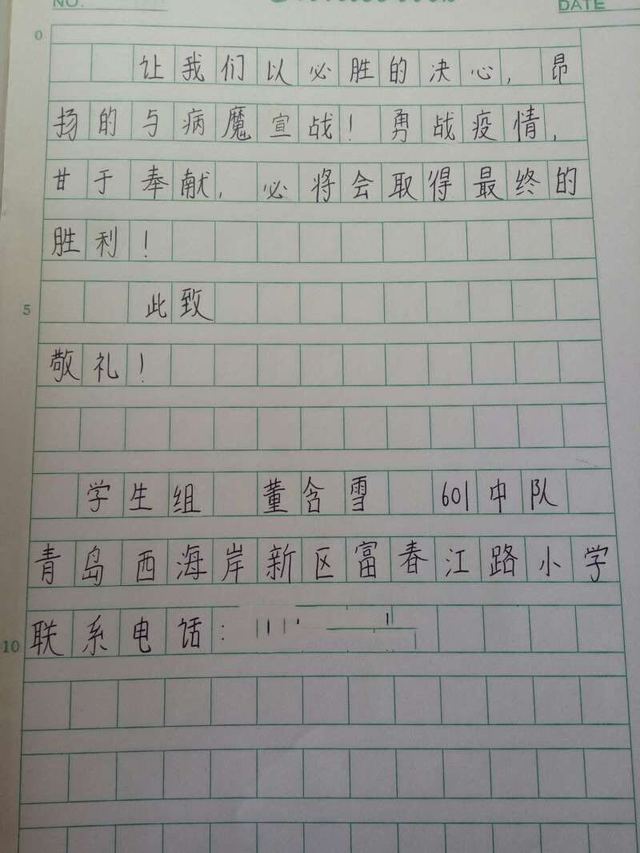 NO.
DATE
0
让我们以必胜的决心，昂
扬的与病魔宣战！勇战疫情，
甘于奉献，必将会取得最终的
胜利！
5
此致
敬礼！
学生组 董含雪 601中队
青岛西海岸新区富春江路小学
10
联系电话：